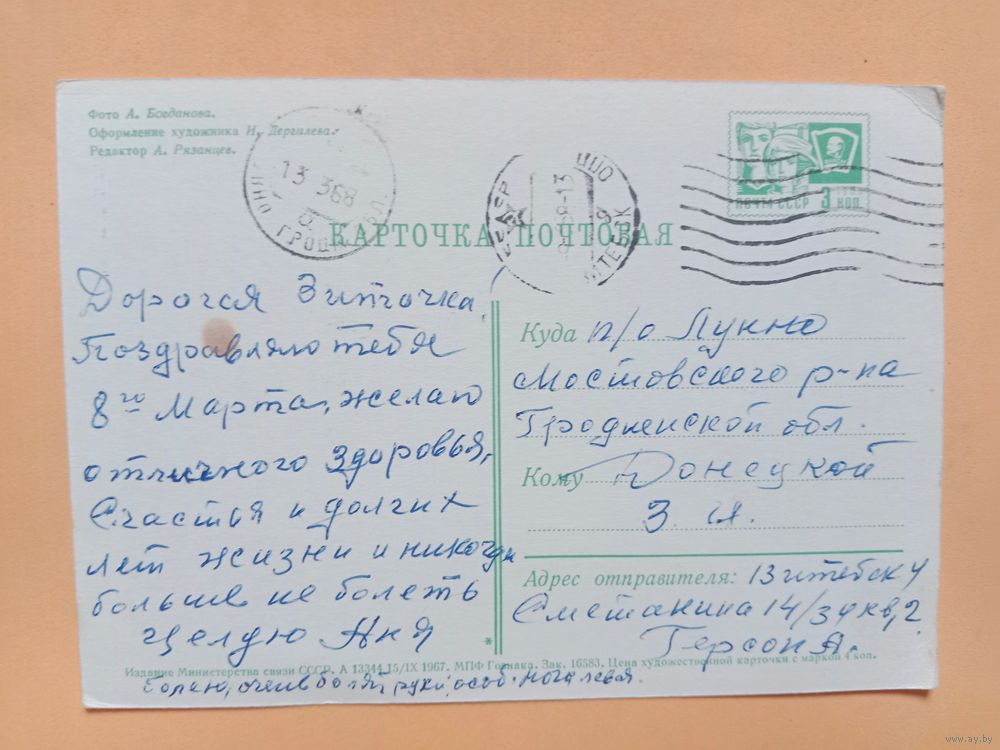 Фото А. Богданова.
Оформление художника И. Дергилева.
Редактор А. Рязанцев.
13 368
ГРОДН
ПОЧТА СССР 3 КОП.
КАРТОЧКА ПОЧТОВАЯ
Дорогая Зиточка,
Поздравляю тебя
8го Марта, желаю
отличного здоровья,
Счастья и долгих
лет жизни и никогда
больше не болеть
Целую Аня
Куда п/о Лунно
Мостовского р-на
Гродненской обл.
Кому Донецкой
З. Я.
Адрес отправителя: Витебск 4
Сметанина 14/34 кв, 2
Герсон А.
Издание Министерства связи СССР. А 13344 15/IX 1967. МПФ Гознака. Зак. 16583. Цена художественной карточки с маркой 4 коп.
Болею, очень болят руки, особ. нога левая.
www.ay.by